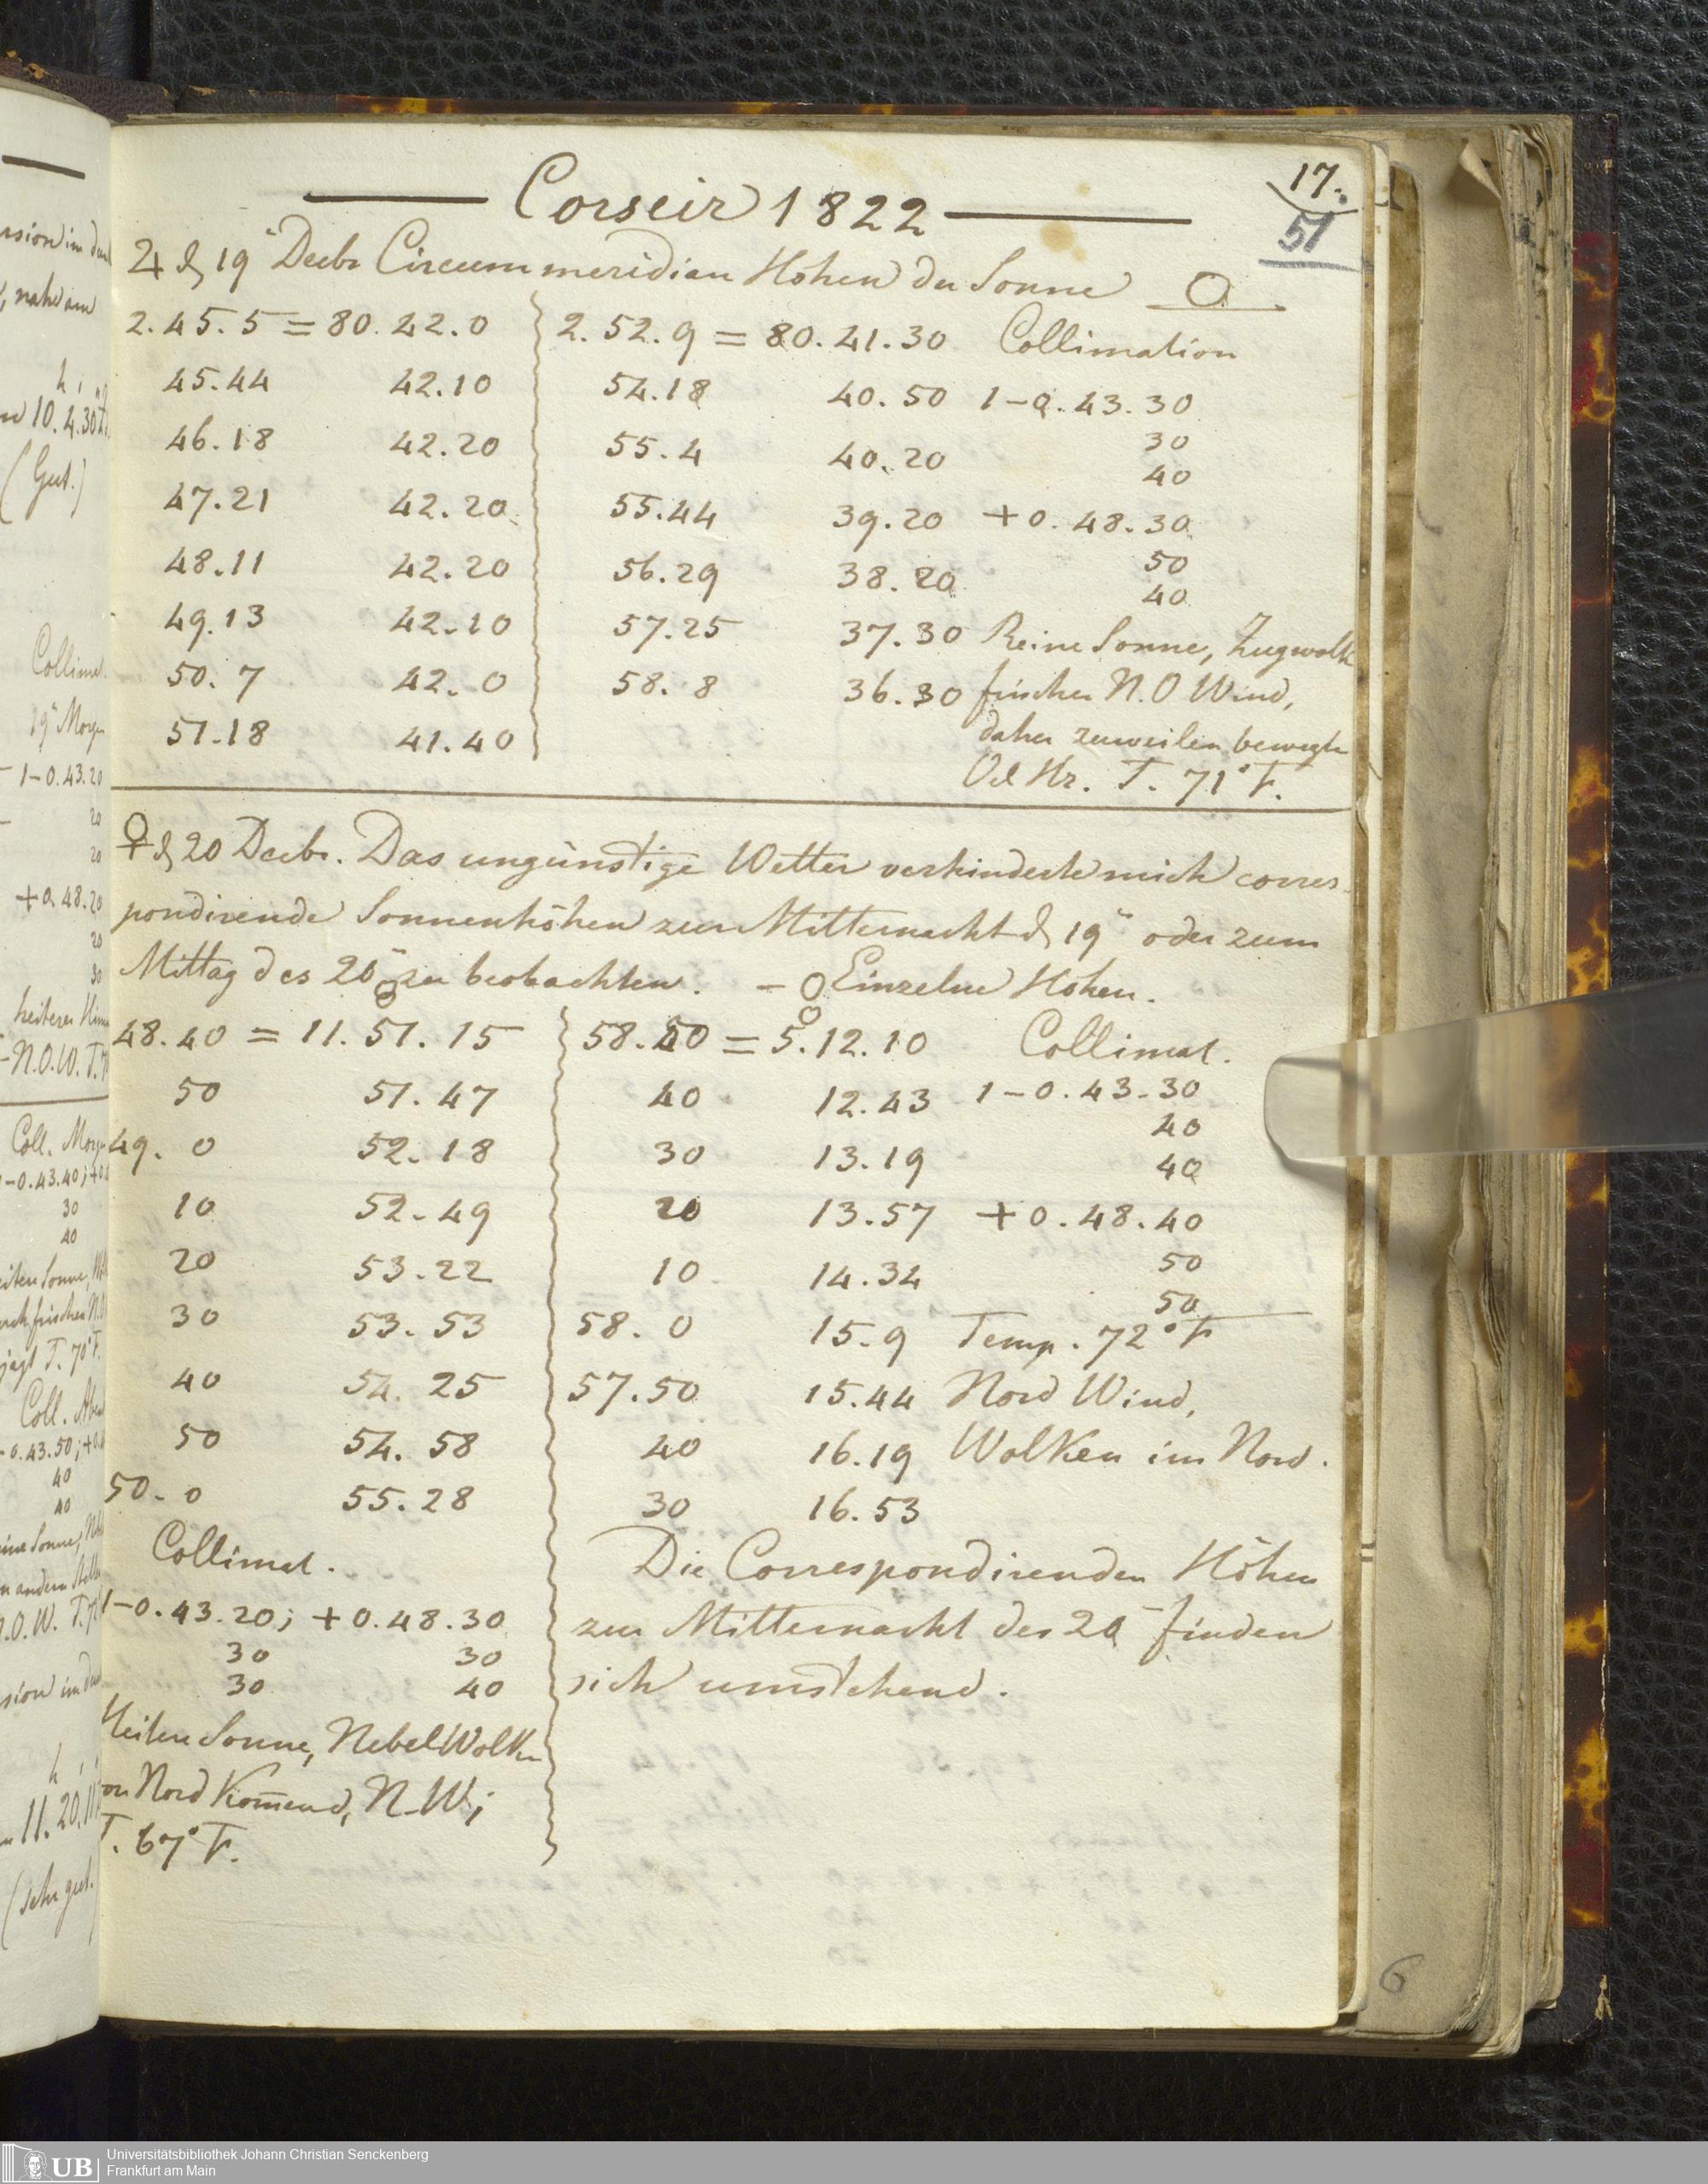 17.
51
Corseir 1822
♃ d 19n Decbr Circummeridian Höhen der Sonne ☉
2.45.5 = 80.42.0
45.44 42.10
46.18 42.20
47.21 42.20
48.11 42.20
49.13 42.10
50.7 42.0
51.18 41.40
2.52.9 = 80.41.30
54.18 40.50
55.4 40.20
55.44 39.20
56.29 38.20
57.25 37.30
58.8 36.30
Collimation
1-0.43.30
30
40
+0.48.30
50
40
Reine Sonne, Zugwolk
frischer N.O Wind,
daher zuweilen bewegte
Oel Hz. T. 71°F.
♀ d 20 Decbr. Das ungünstige Wetter verhinderte mich corres-
pondirende Sonnenhöhen zur Mitternacht d 19n oder zum
Mittag des 20n zu beobachten. – Einzelne Höhen.
48.40 = 11.51.15
50 51.47
49.0 52.18
10 52.49
20 53.22
30 53.53
40 54.25
50 54.58
50.0 55.28
Collimat.
1-0.43.20; +0.48.30
30 30
30 40
Heitere Sonne, Nebel Wolken
von Nord kom̅end, N.W;
T. 67°F.
58.50 = 5.12.10
40 12.43
30 13.19
20 13.57
10 14.34
58.0 15.9
57.50 15.44
40 16.19
30 16.53
Collimat.
1-0.43.30
40
40
+0.48.40
50
50
Temp. 72°F
Nord Wind,
Wolken im Nord.
Die Correspondirenden Höhen
zur Mitternacht des 20n finden
sich umstehend.
6
h
10.4.30
(Gut.)
Collimat.
19n Morgen
1-0.43.20
20
20
+0.48.20
20
30
N.O.W.
Coll. Morgen
-0.43.40;
30
40
T. 70°F.
Coll.
0.43.50;
40
40
11.20.
(sehr gut.
UB
Universitätsbibliothek Johann Christian Senckenberg
Frankfurt am Main